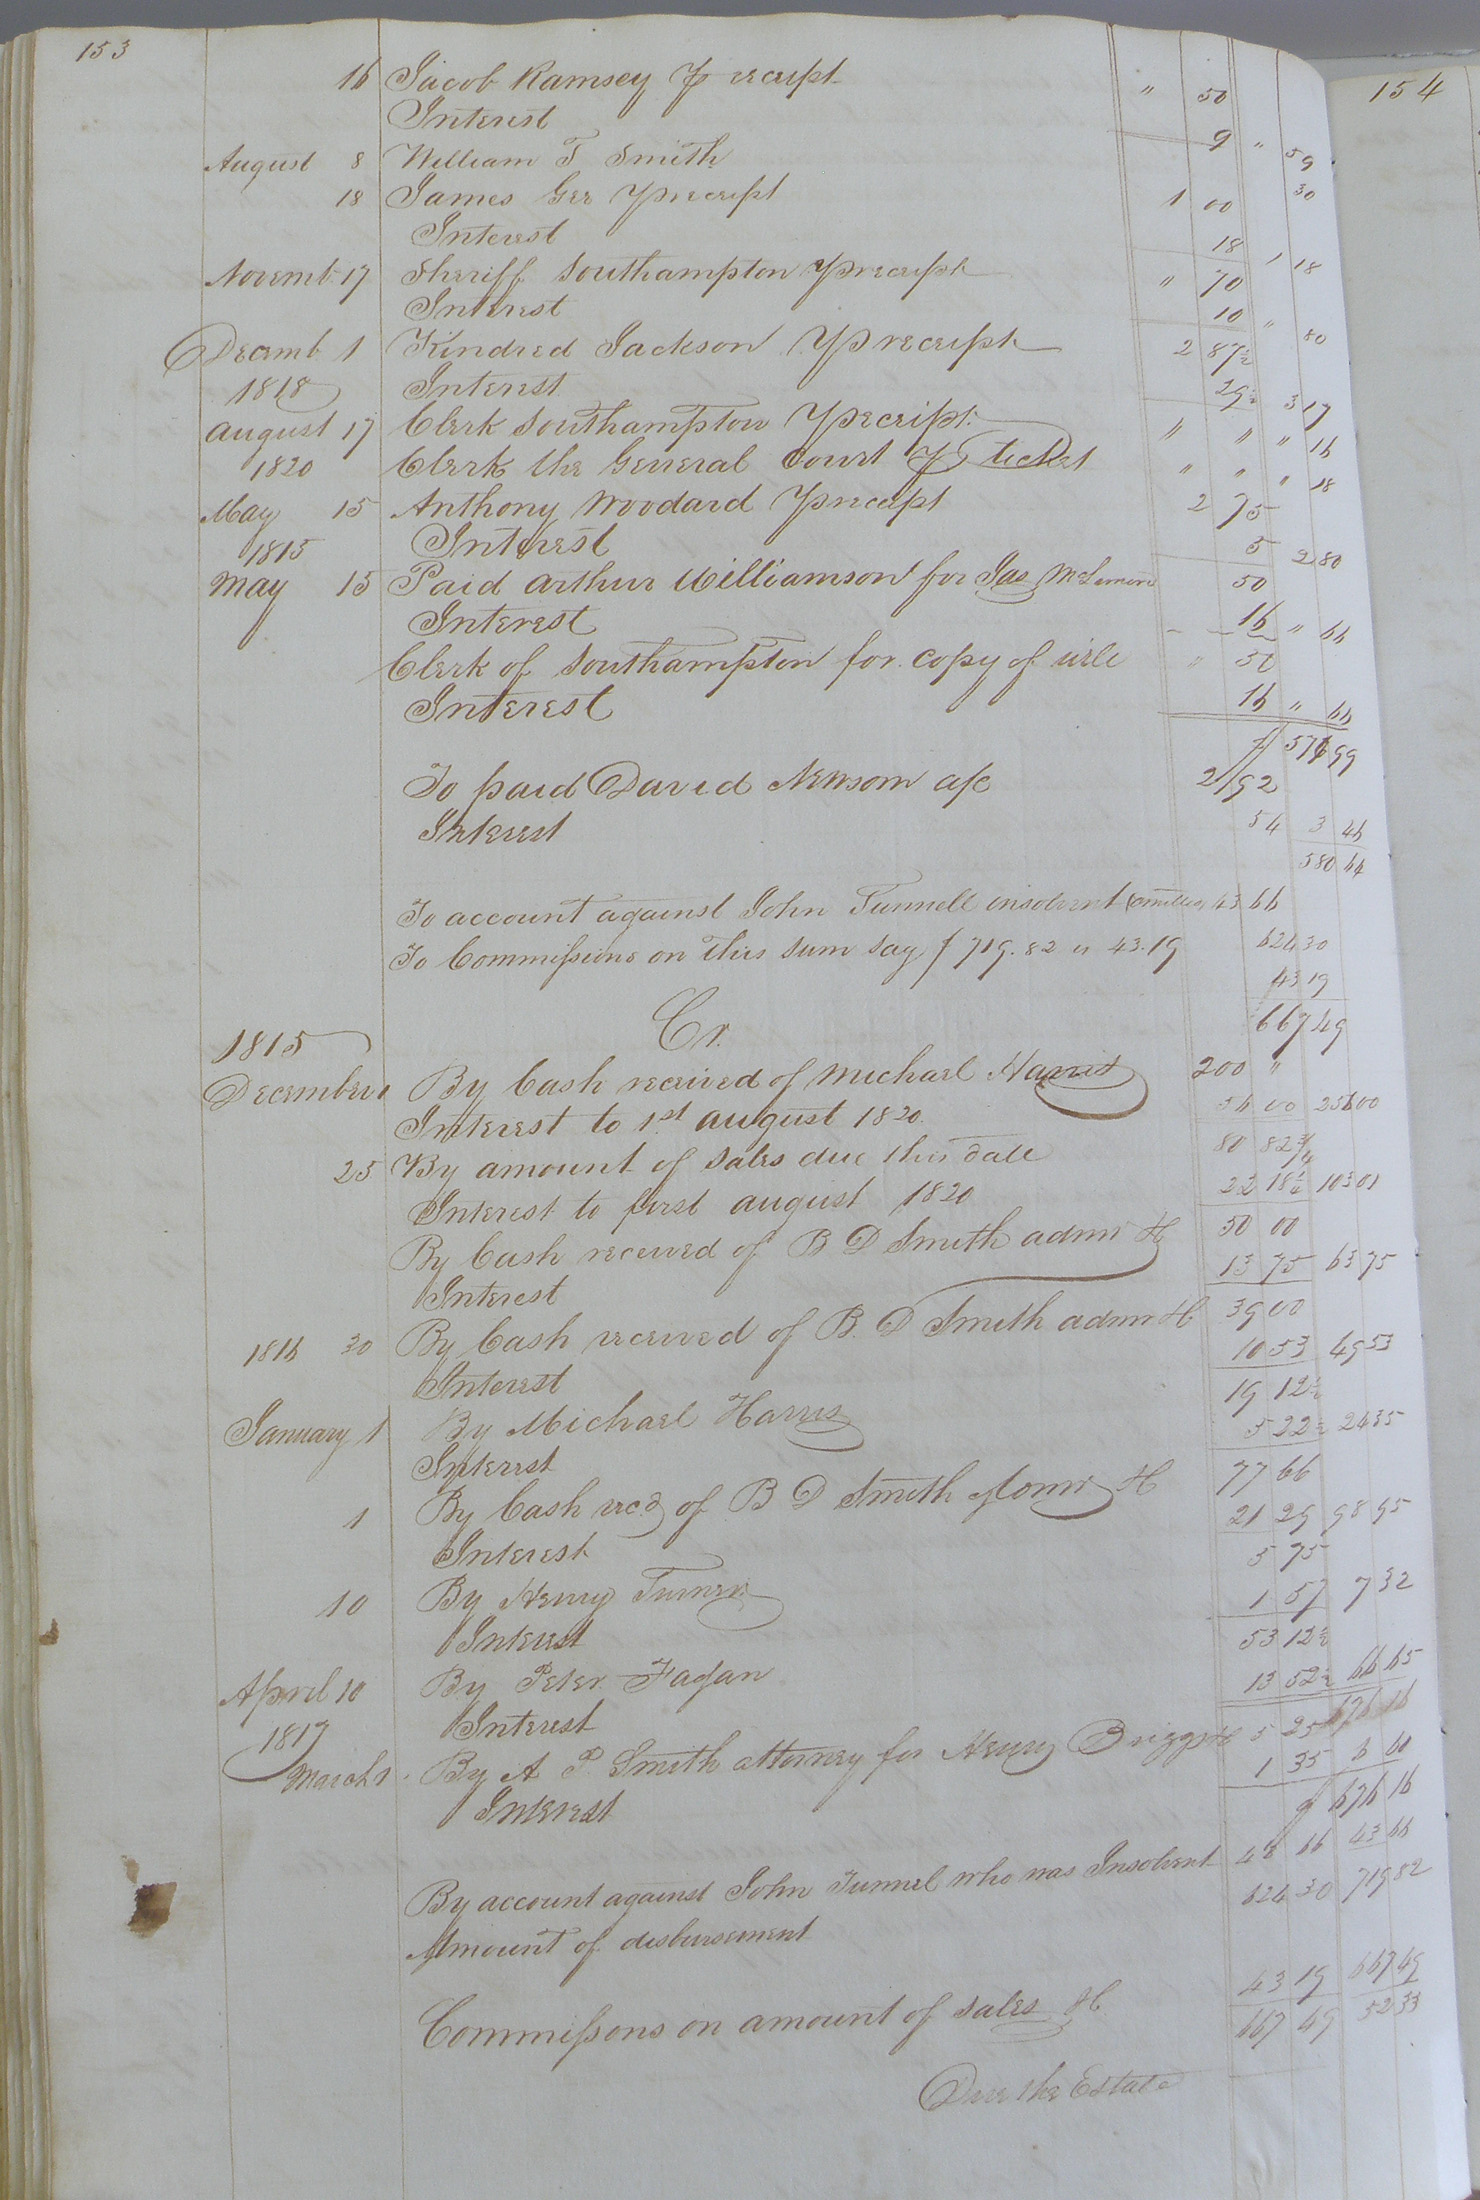 153
154
16 Jacob Ramsey P receipt " 50
Interest 9 " 59
August 8 William T Smith 30
18 James Gee P receipt 1 00
Interest 18 1 18
Novemb. 17 Sheriff Southampton P receipt " 70
Interest 10 " 80
Decemb. 1 Kindred Jackson P receipt 2 87½
1818 Interest 29½ 3 17
August 17 Clerk Southampton P receipt " " " 16
1820 Clerk the General Court P ticket " " " 18
May 15 Anthony Woodard P receipt 2 75
1815 Interest 5 2 80
May 15 Paid Arthur Williamson for Jas McLemore 50
Interest 16 " 66
Clerk of Southampton for copy of will " 50
Interest 16 " 66
576 99
To paid David Newsom a/c 2 92
Interest 54 3 46
580 44
To account against John Tunnell insolvent 43 66
To Commissions on this sum say $ 719.82 is 43.19 624 30
43 19
667 49
Cr.
1815
December 1 By Cash received of Michael Harris 200 "
Interest to 1st august 1820. 56 00 256 00
25 By amount of sales due this date 80 82¾
Interest to first august 1820 22 18¼ 103 01
By Cash received of B D Smith admr H 50 00
Interest 13 75 63 75
1816 30 By Cash received of B. D Smith admr H 39 00
Interest 10 53 49 53
January 1 By Michael Harris 19 12½
Interest 5 22½ 24 35
1 By Cash recd of B D Smith Admr H 77 66
Interest 21 29 98 95
10 By Henry Turner 5 75
Interest 1 57 7 32
April 10 By Peter Fagan 53 12½
Interest 13 52½ 66 65
1817
March 1. By A P. Smith attorney for Henry Briggs 5 25
Interest 1 35 6 60
$ 676 16
By account against John Tunnel who was Insolvent 43 66 43 66
Amount of disbursement 624 30 719 82
Commissons on amount of sales H. 43 19 667 49
667 49 52 33
Due the Estate